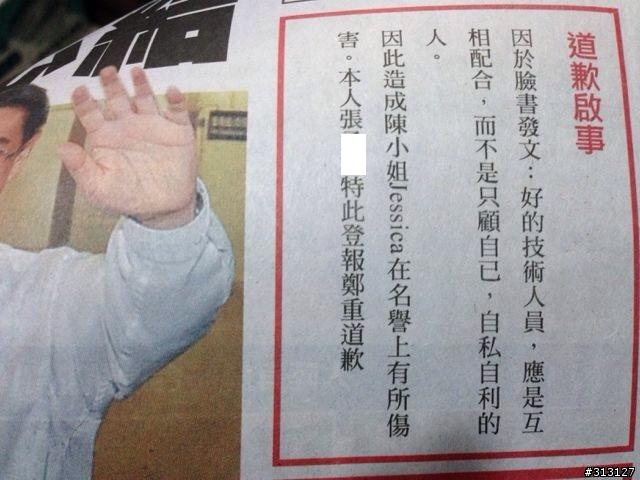 結
道歉啟事
因於臉書發文：好的技術人員，應是互
相配合，而不是只顧自己，自私自利的
人。
因此造成陳小姐Jessica在名譽上有所傷
害。本人張
特此登報鄭重道歉
#313127